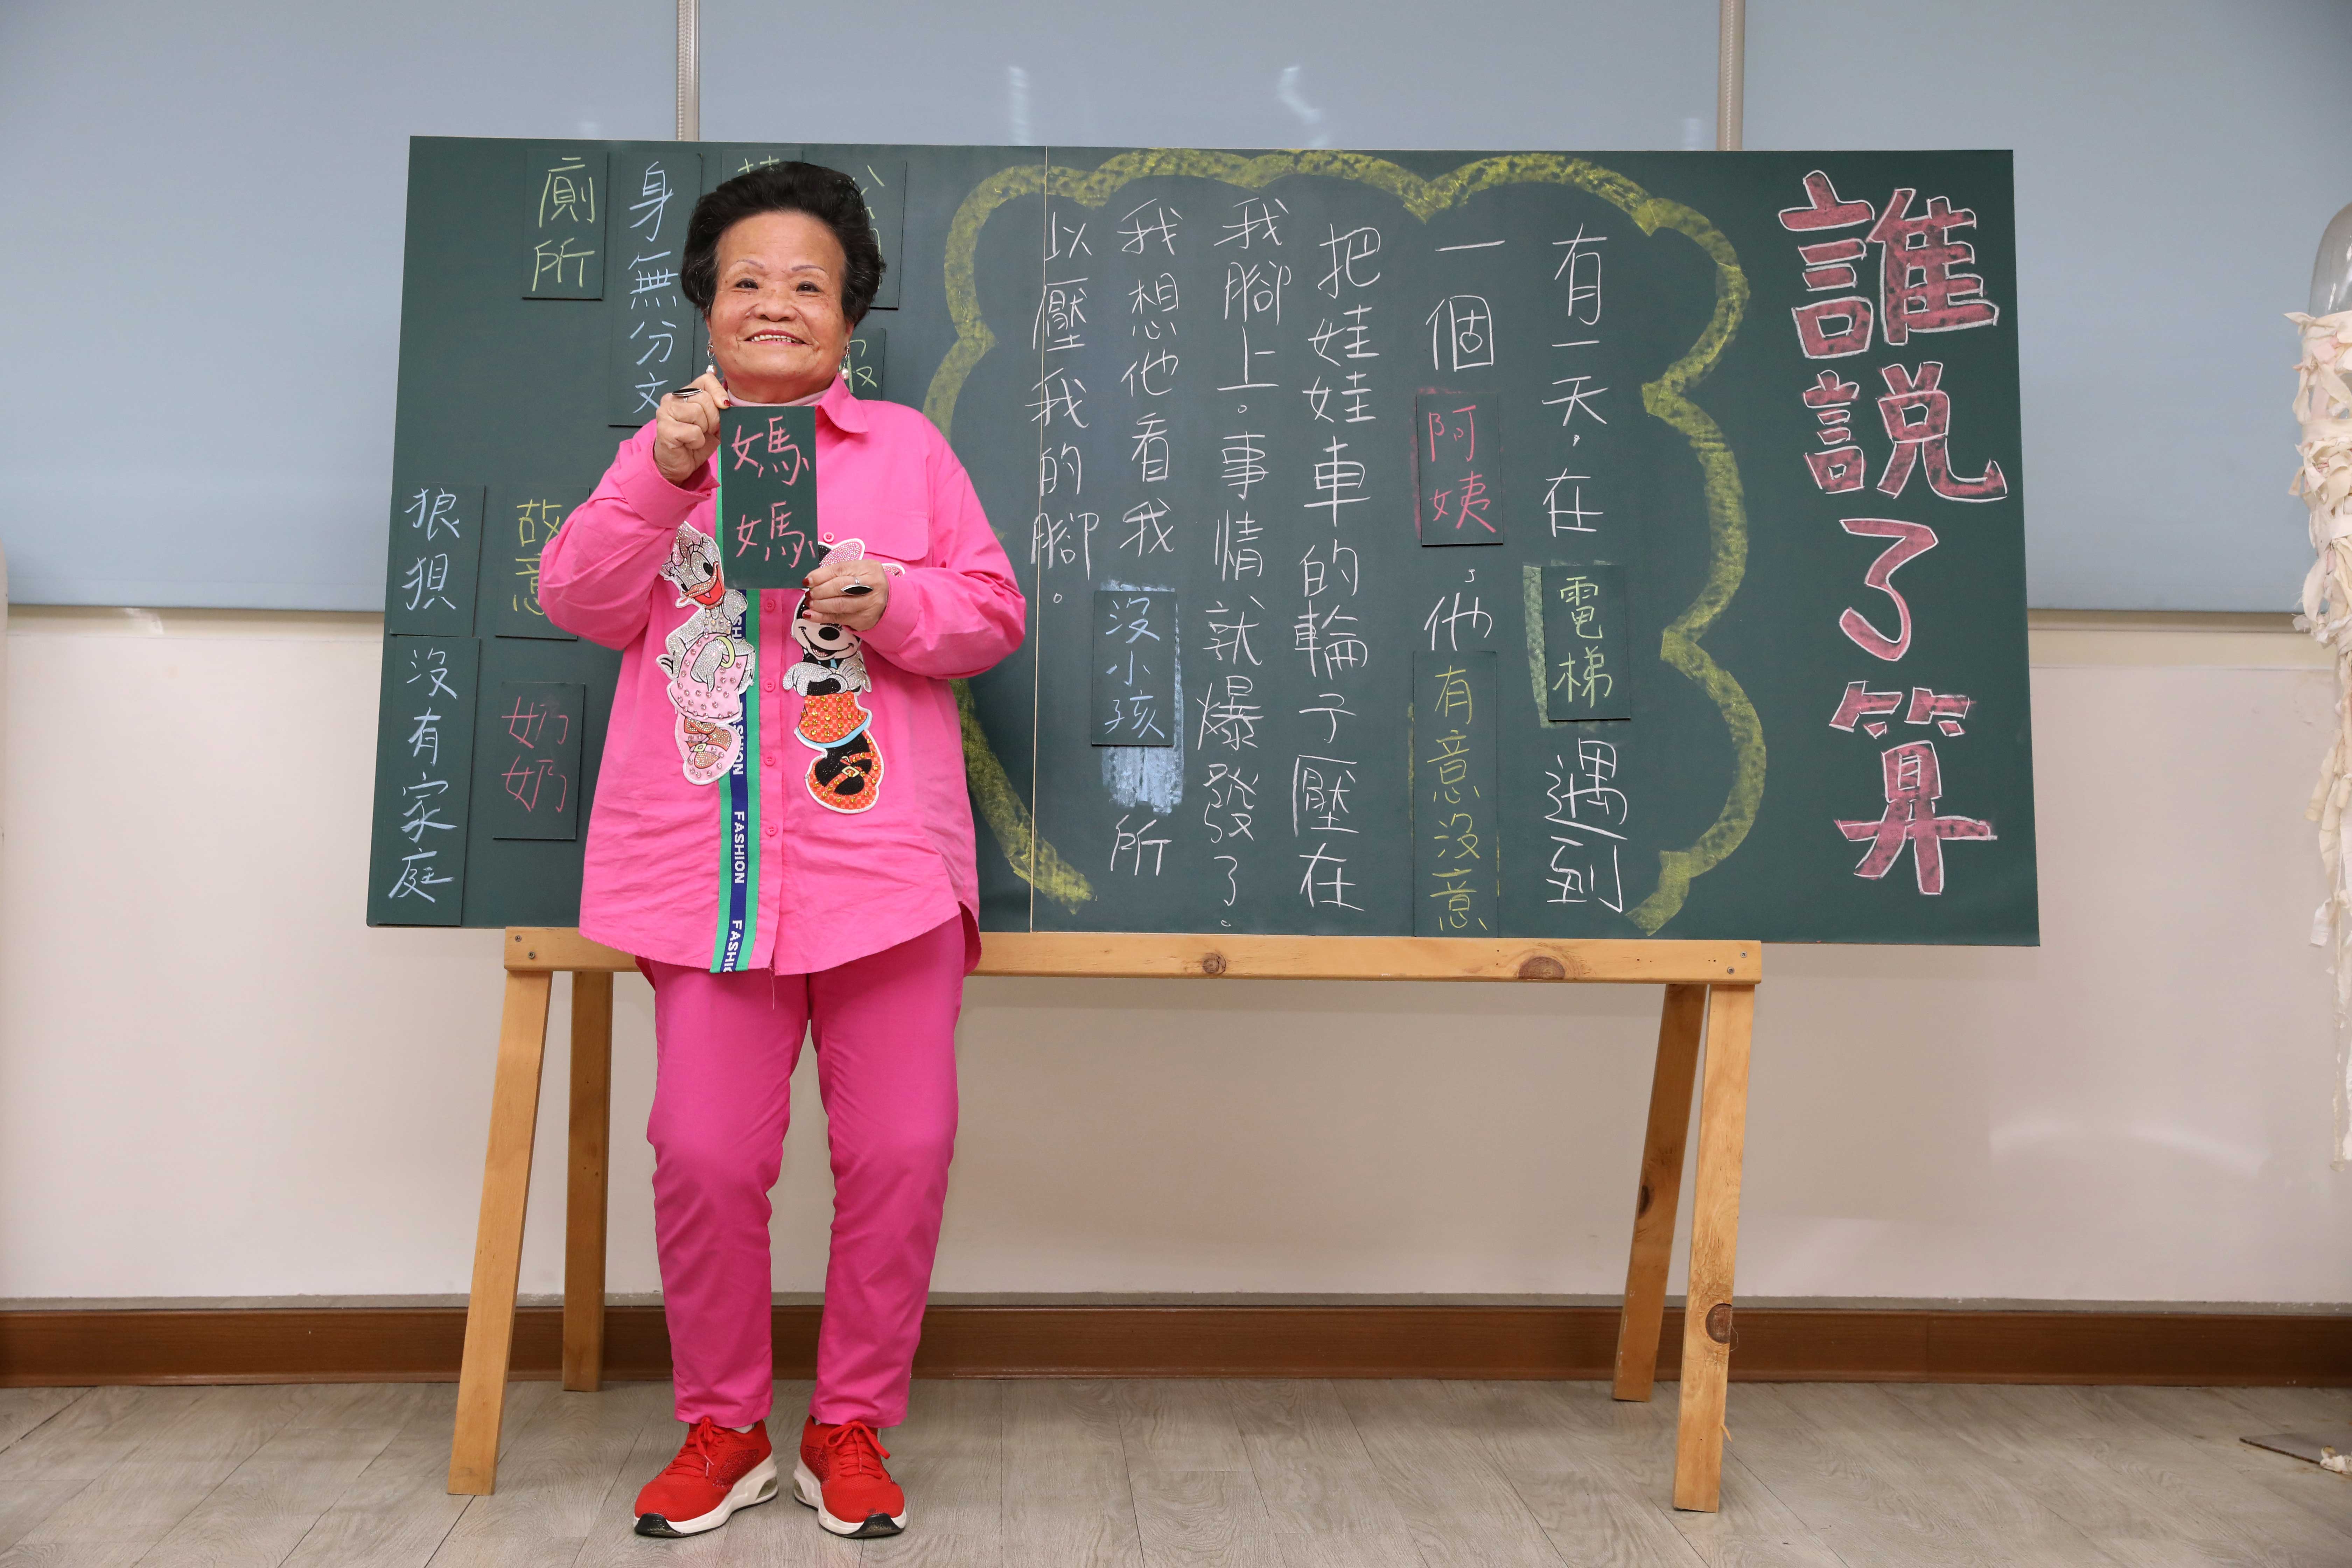 誰說了算
有一天，在電梯遇到
一個阿姨，他有意沒意
把娃娃車的輪子壓在
我腳上。事情就爆發了。
我想他看我沒小孩所
以壓我的腳。
身無分文
廁所
媽媽
故意
奶奶
狼狽
沒有家庭
FASHION
FASHION